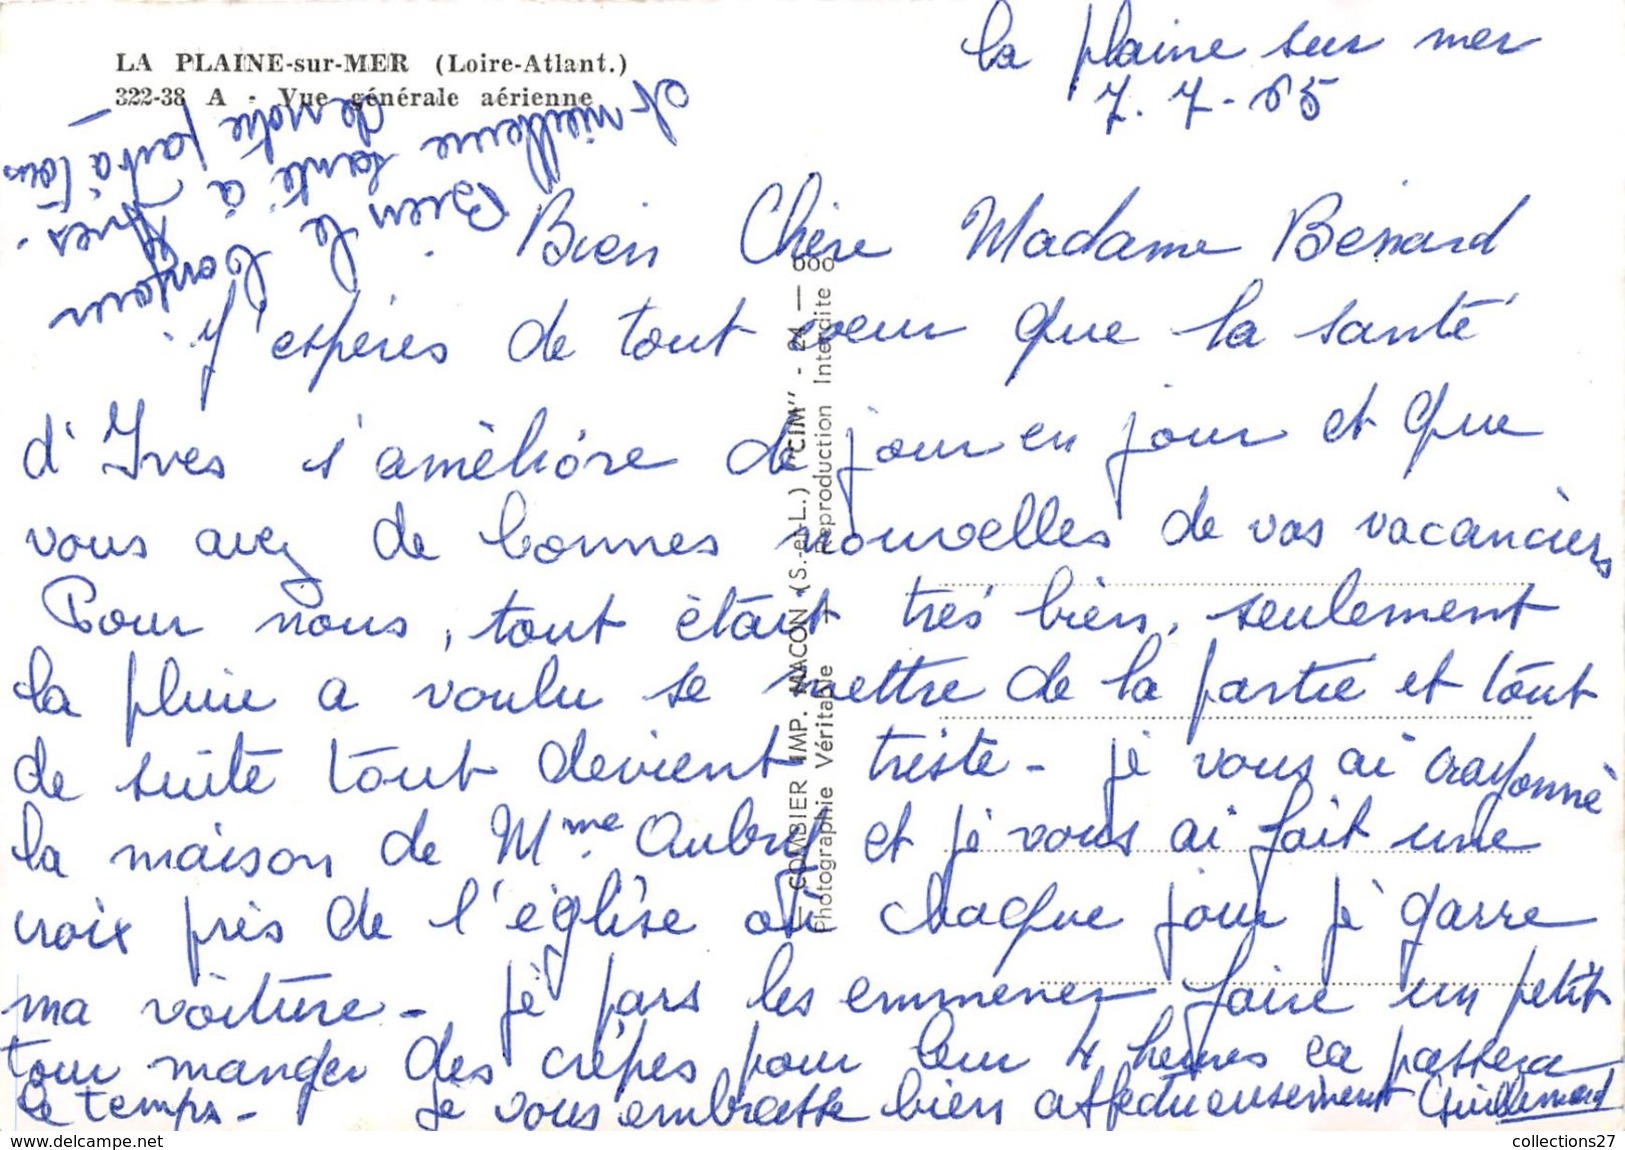 LA PLAINE-sur-MER (Loire-Atlant.)
322-38 A - Vue générale aérienne
la plaine sur mer
7. 7 - 65
Bien Chère Madame Benard
J'espéres de tout coeur que la santé
d'Yves s'améliore de jour en jour et que
vous avez de bonnes nouvelles de vos vacanciers
Pour nous, tout était très bien, seulement
la pluie a voulu se mettre de la partie et tout
de suite tout devient triste - je vous ai crayonné
la maison de Mme Aubry et je vous ai fait une
croix près de l'église où chaque jour je garre
ma voiture - je pars les emmener faire un petit
tour manger des crépes pour leur 4 heures ca passera
le temps - Je vous embrasse bien affectueusement Guillemard
Bien le bonjour
et meilleure santé à Yves.
de notre part à tous
COMBIER IMP. MACON (S.-et-L.) "CIM" - 24 — 600
Photographie Véritable - Reproduction Interdite
collections27